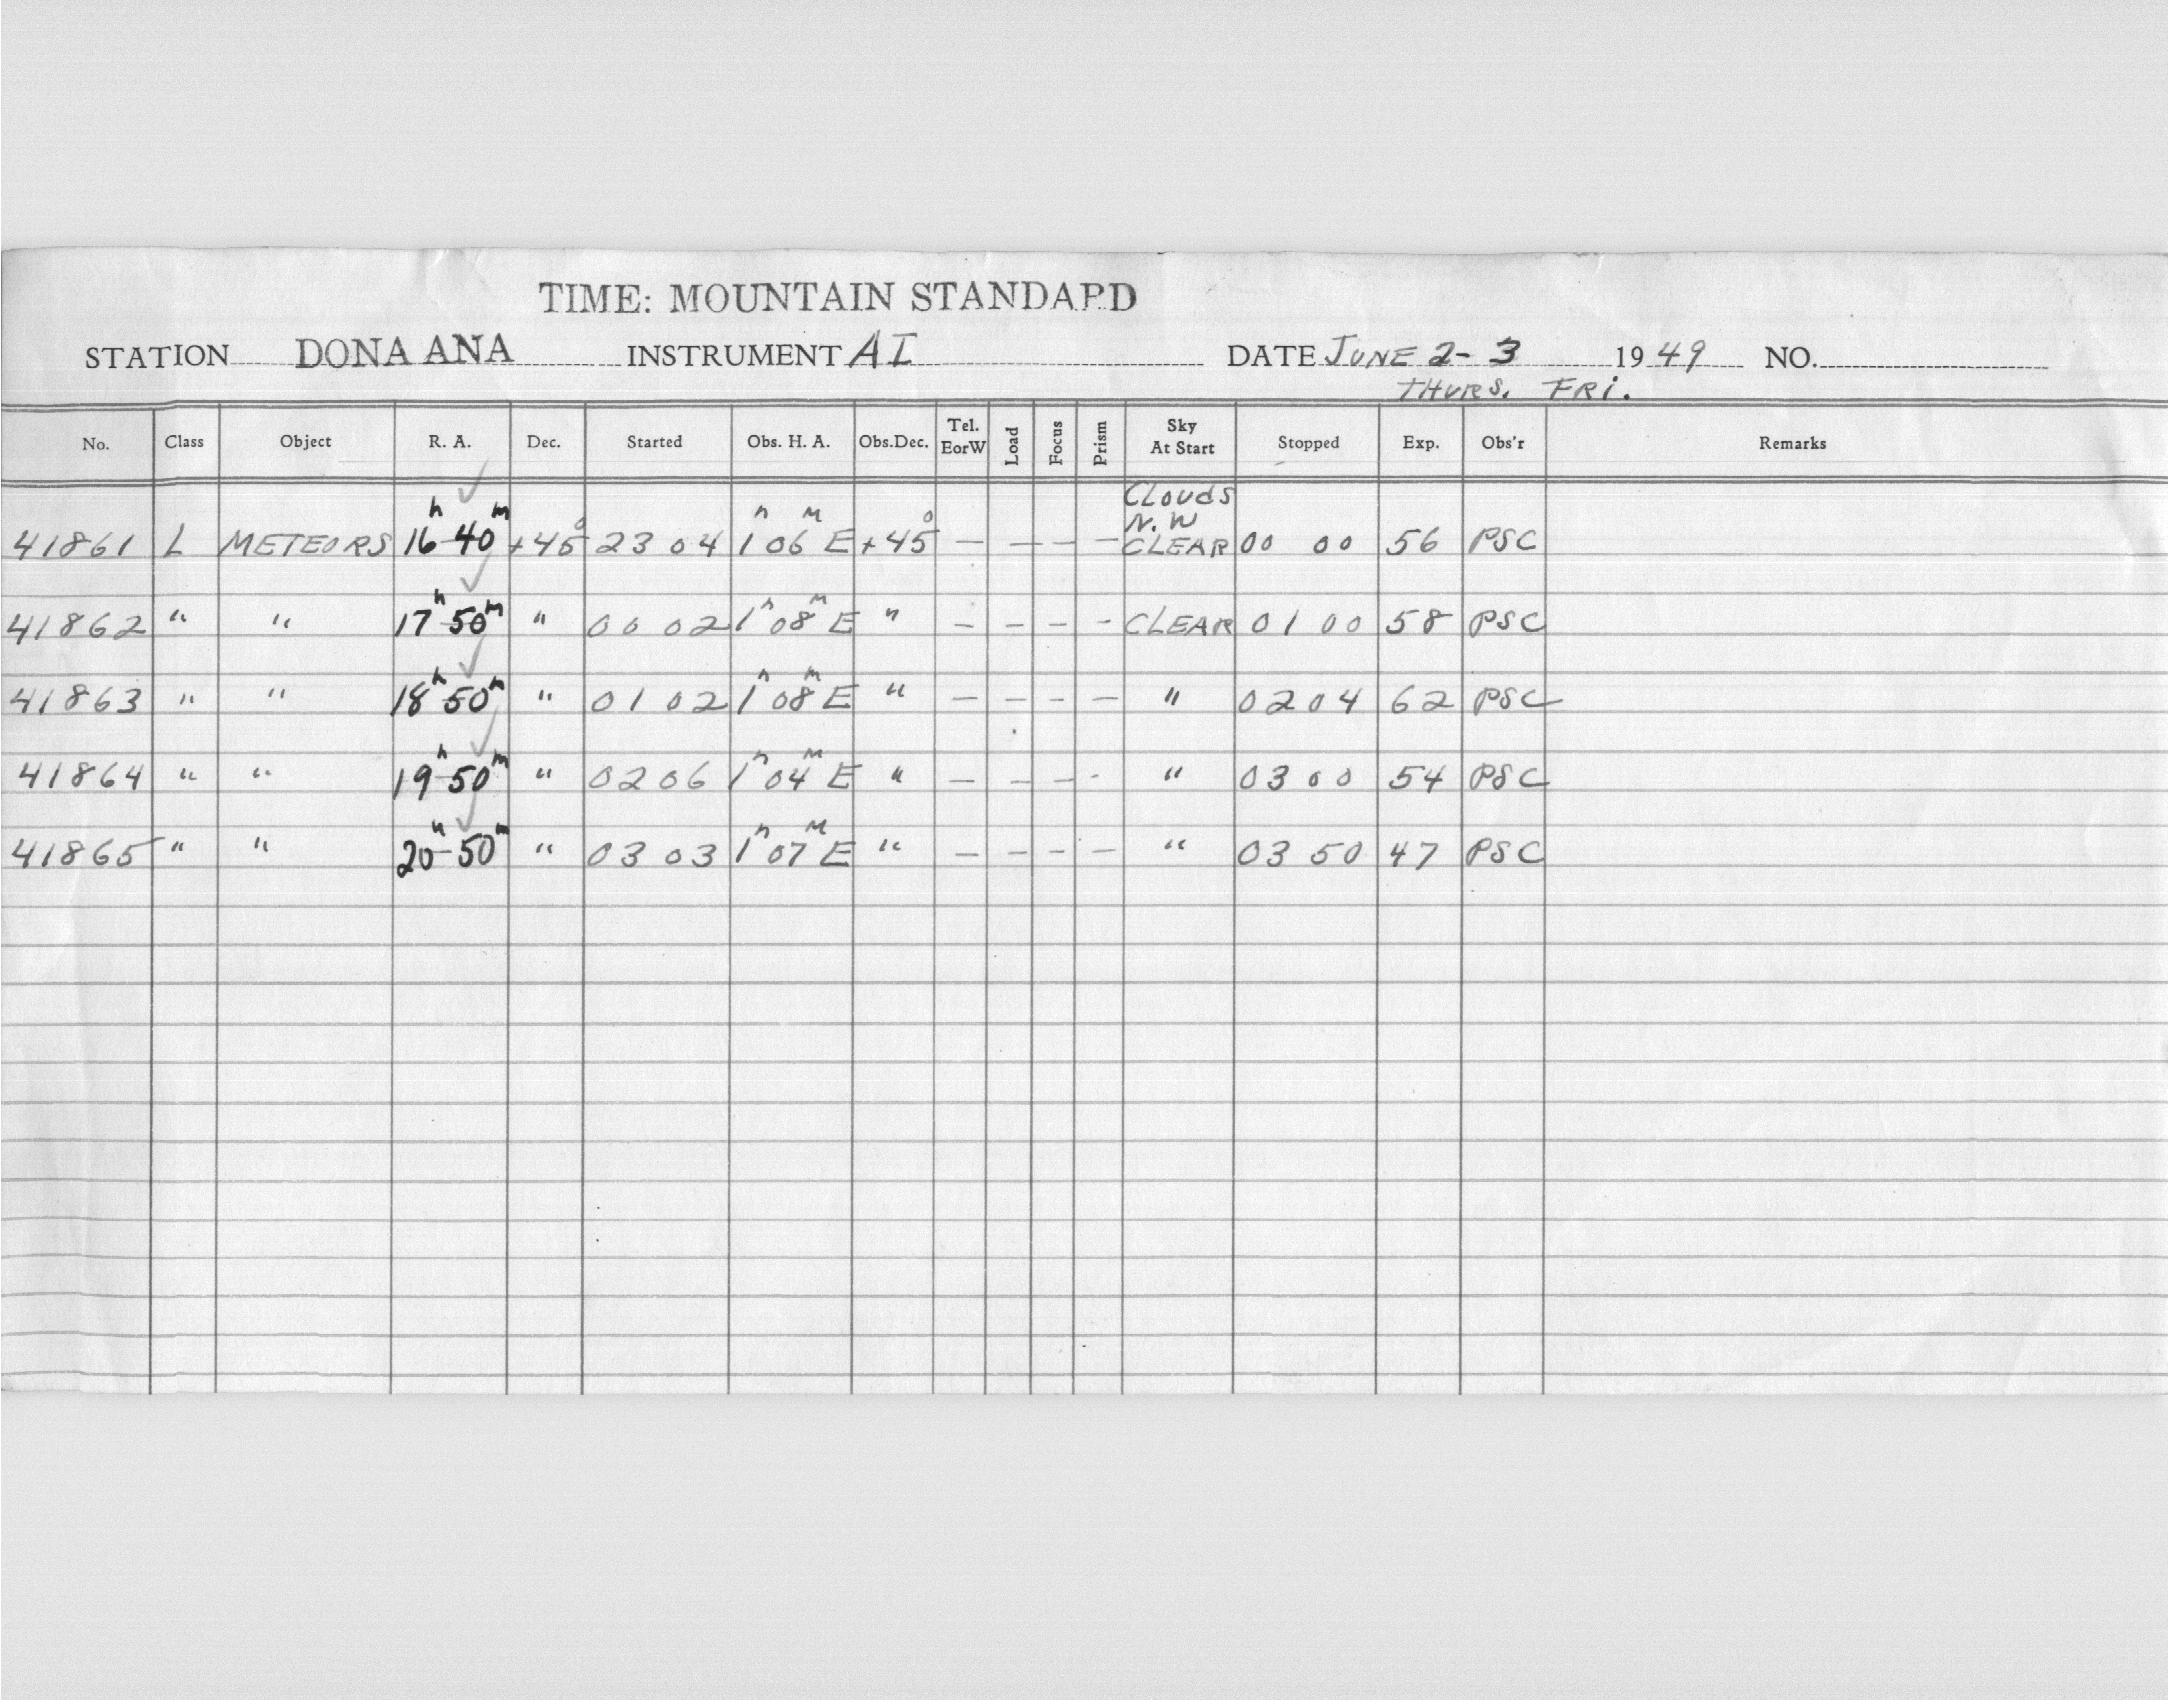 TIME: MOUNTAIN STANDARD
STATION DONA ANA INSTRUMENT AI DATE JUNE 2-3 1949 NO.
THURS. FRI.
No. Class Object R. A. Dec. Started Obs. H. A. Obs.Dec. Tel. EorW Load Focus Prism Sky At Start Stopped Exp. Obs'r Remarks
41861 L METEORS 16h 40m +45° 23 04 1h 06m E +45° — — — — CLOUDS N.W CLEAR 00 00 56 PSC
41862 " " 17h 50m " 00 02 1h 08m E " — — — — CLEAR 01 00 58 PSC
41863 " " 18h 50m " 01 02 1h 08m E " — — — — " 02 04 62 PSC
41864 " " 19h 50m " 02 06 1h 04m E " — — — — " 03 00 54 PSC
41865 " " 20h 50m " 03 03 1h 07m E " — — — — " 03 50 47 PSC